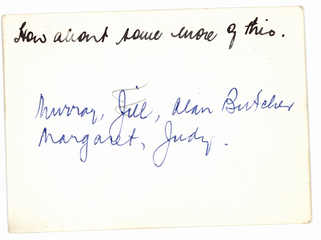 How about some more of this.
Murray, Jill, Alan Butcher
Margaret, Judy.